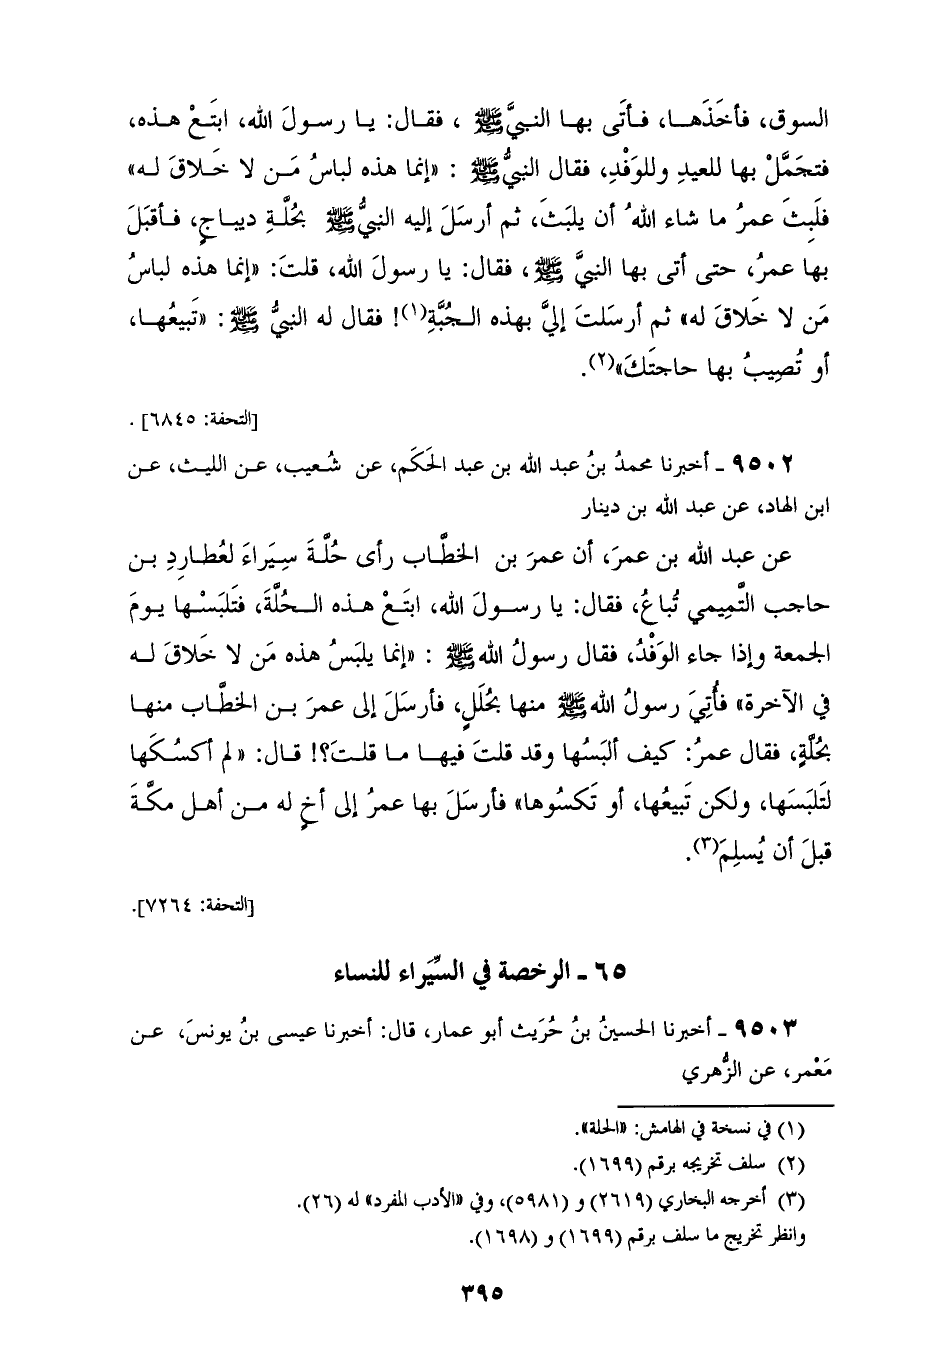 السوق، فأخَذَهـا، فـأتَى بهـا النبيَّ ﷺ ، فقـال: يـا رسـولَ الله، ابتَعْ هـذه،
فتجَمَّلْ بها للعيدِ وللوَفْدِ، فقال النبيُّ ﷺ : «إنما هذه لباسُ مَـن لا خَـلاقَ لـه»
فلَبِثَ عمرُ ما شاء اللهُ أن يلبَثَ، ثم أرسَلَ إليه النبيُّ ﷺ بحُلَّةِ ديباجٍ، فـأقبَلَ
بها عمرُ، حتى أتى بها النبيَّ ﷺ، فقال: يا رسولَ الله، قلتَ: «إنما هذه لباسُ
مَن لا خَلاقَ له» ثم أرسَلتَ إليَّ بهذه الـجُبَّةِ(١)! فقال له النبيُّ ﷺ: «تَبيعُهـا،
أو تُصِيبُ بها حاجتَكَ»(٢).
[التحفة: ٦٨٤٥] .
٩٥٠٢ ـ أخبرنا محمدُ بنُ عبد الله بن عبد الحَكَم، عن شُعيب، عـن الليـث، عـن
ابن الهاد، عن عبد الله بن دينار
عن عبد الله بن عمرَ، أن عمرَ بن الخطَّاب رأى حُلَّةَ سِيَراءَ لعُطـارِدِ بـن
حاجب التَّمِيمي تُباعُ، فقال: يا رسـولَ الله، ابتَعْ هـذه الـحُلَّةَ، فتَلبَسْـها يـومَ
الجمعة وإذا جاء الوَفْدُ، فقال رسولُ الله ﷺ : «إنما يلبَسُ هذه مَن لا خَلاقَ لـه
في الآخرة» فأُتِيَ رسولُ الله ﷺ منها بحُلَلٍ، فأرسَلَ إلى عمرَ بـن الخطَّاب منهـا
بحُلَّةٍ، فقال عمرُ: كيف ألبَسُها وقد قلتَ فيهـا مـا قلـتَ؟! قـال: «لم أكسُـكَها
لتَلبَسَها، ولكن تَبيعُها، أو تَكسُوها» فأرسَلَ بها عمرُ إلى أخٍ له مـن أهـل مكَّـةَ
قبلَ أن يُسلِمَ(٣).
[التحفة: ٧٢٦٤].
٦٥ ـ الرخصة في السِّيَراء للنساء
٩٥٠٣ ـ أخبرنا الحسينُ بنُ حُرَيث أبو عمار، قال: أخبرنا عيسى بنُ يونسَ، عـن
مَعْمر، عن الزُّهري
(١) في نسخة في الهامش: «الحلة».
(٢) سلف تخريجه برقم (١٦٩٩).
(٣) أخرجه البخاري (٢٦١٩) و (٥٩٨١)، وفي «الأدب المفرد» له (٢٦).
وانظر تخريج ما سلف برقم (١٦٩٩) و (١٦٩٨).
٣٩٥